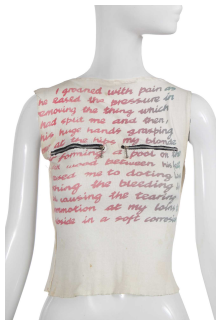 I groaned with pain as
he eased the pressure in
removing the thing which
had split me and then,
his huge hands grasping
at the hips my blonde
forming a pool on the
wood between his
ased me to doting
ning the bleeding
causing the tearing
mmotion at my loins
side in a soft corrosi